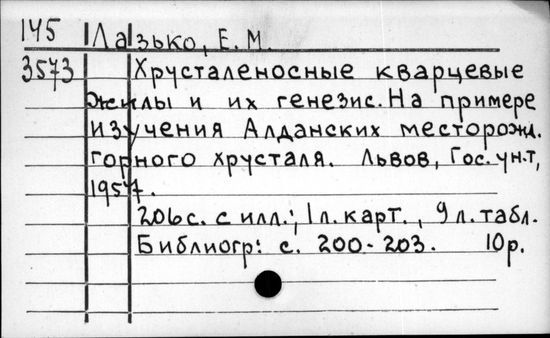 145 Лазько, Е. М.
3573 Хрусталеносные кварцевые
жилы и их генезис. На примере
изучения Алданских месторожд.
горного хрусталя. Львов, Гос. ун-т,
1957.
206 с. с илл.; 1 л. карт., 9 л. табл.
Библиогр: с. 200-203. 10 р.